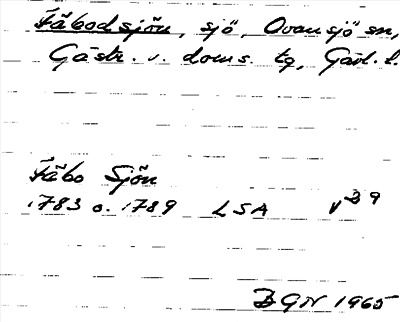 Fäbodsjön, sjö, Ovansjö sn,
Gästr. v. doms. tg, Gävl. l.
Fäbo Sjön
1783 o. 1789 LSA V 39
BGN 1965